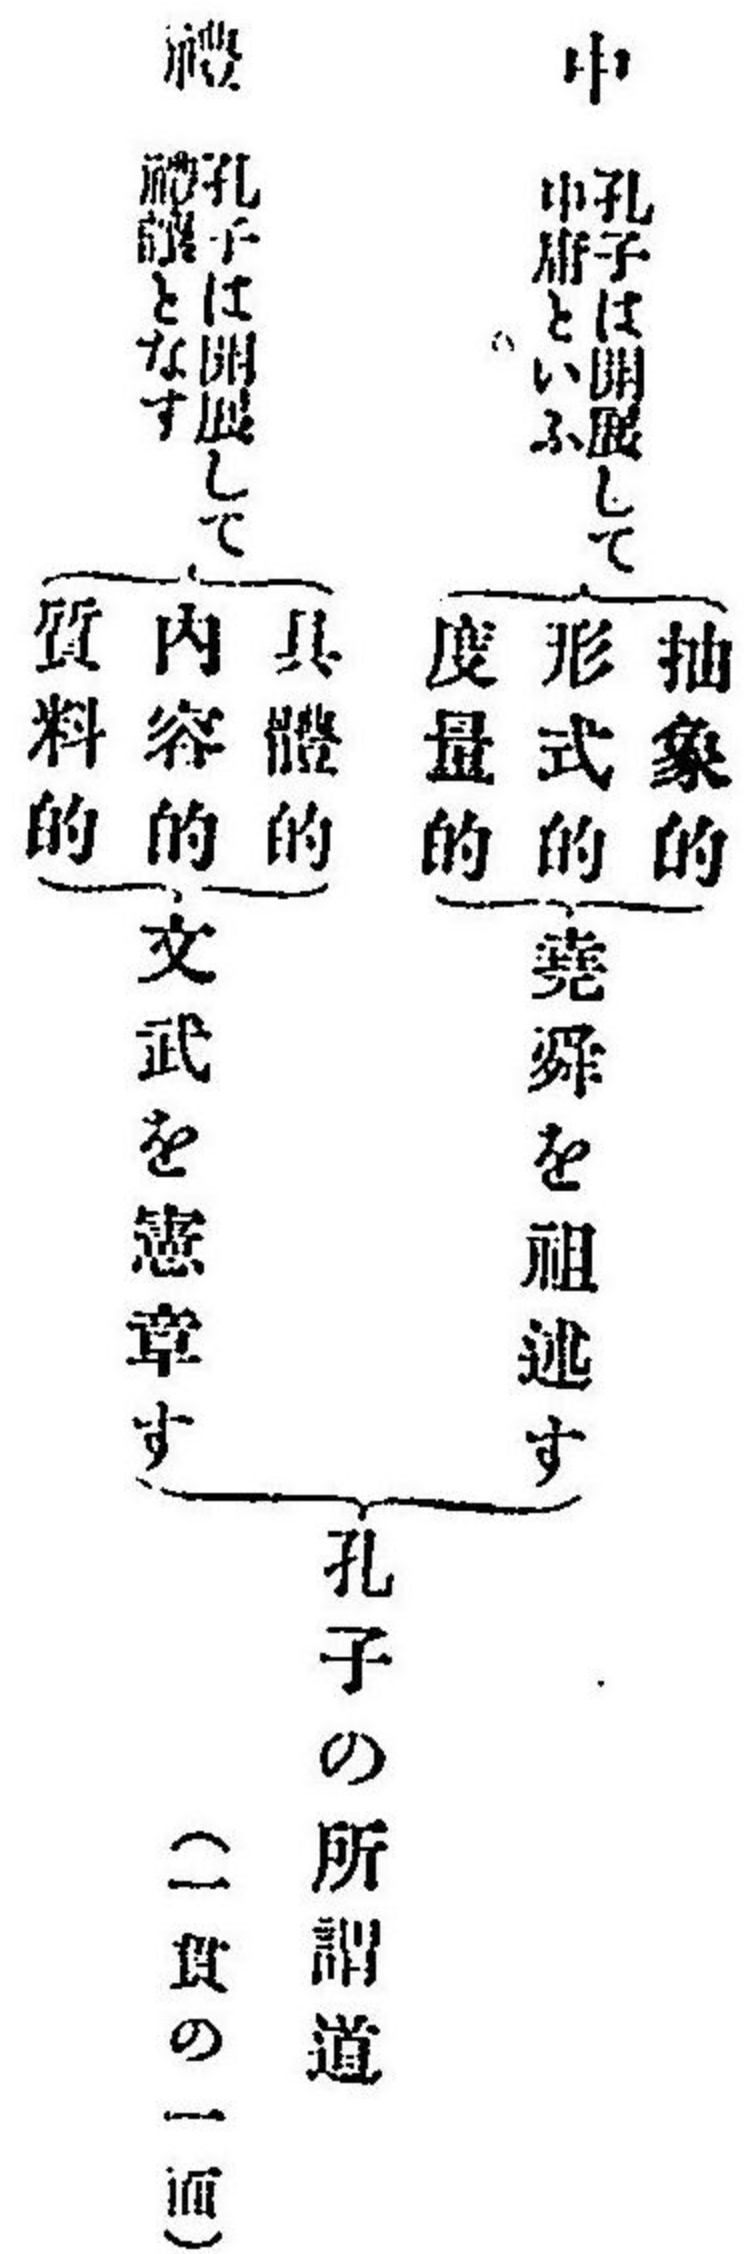 中
孔子は開展して
中庸といふ
抽象的
形式的
度量的
堯舜を祖述す
禮
孔子は開展して
禮讓となす
具體的
內容的
質料的
文武を憲章す
孔子の所謂道
(一貫の一面)